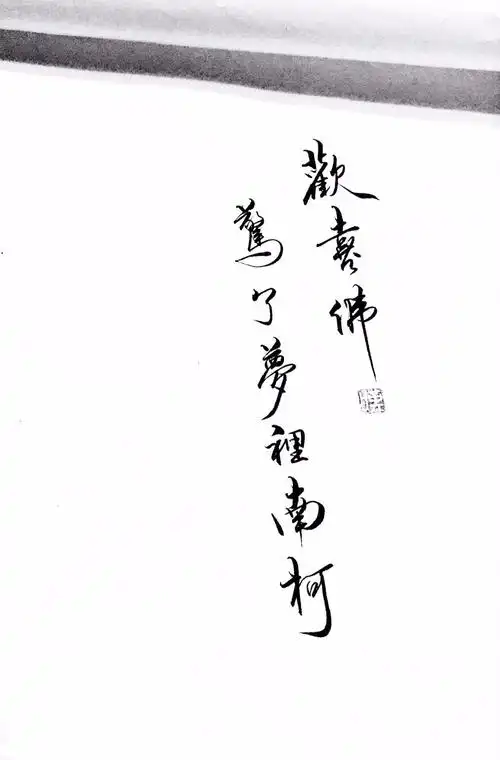 歡喜佛
驚了夢裡南柯